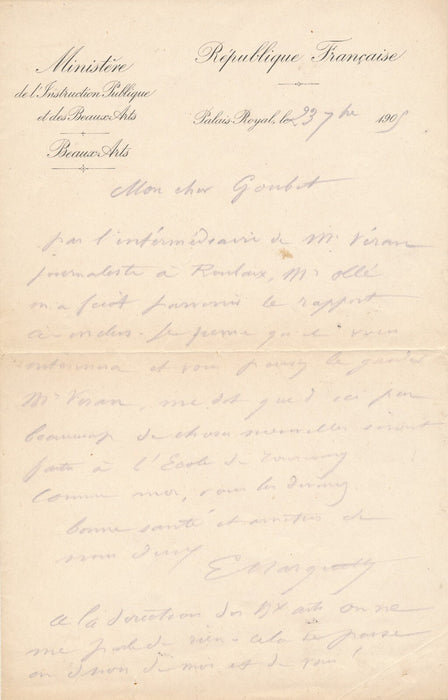 Ministère
de l'Instruction Publique
et des Beaux-Arts
Beaux-Arts
République Française
Palais-Royal, le 23 7bre 1905
Mon cher Goubet
par l'intermédiaire de Mr Véran
journaliste à Roubaix, Mr ollé
m'a fait parvenir le rapport
ci-inclus. Je pense qu'il vous
et vous pouvez le garder
Mr Veran, me dit que d'ici peu
beaucoup de choses nouvelles seront
faits à l'Ecole de Tourcoing
Comme moi, vous les
bonne santé et amitiés de
nous deux
E Marquette
a la direction des Bx arts on ne
me parle de rien - cela se passe
en dehors de moi et de vous !